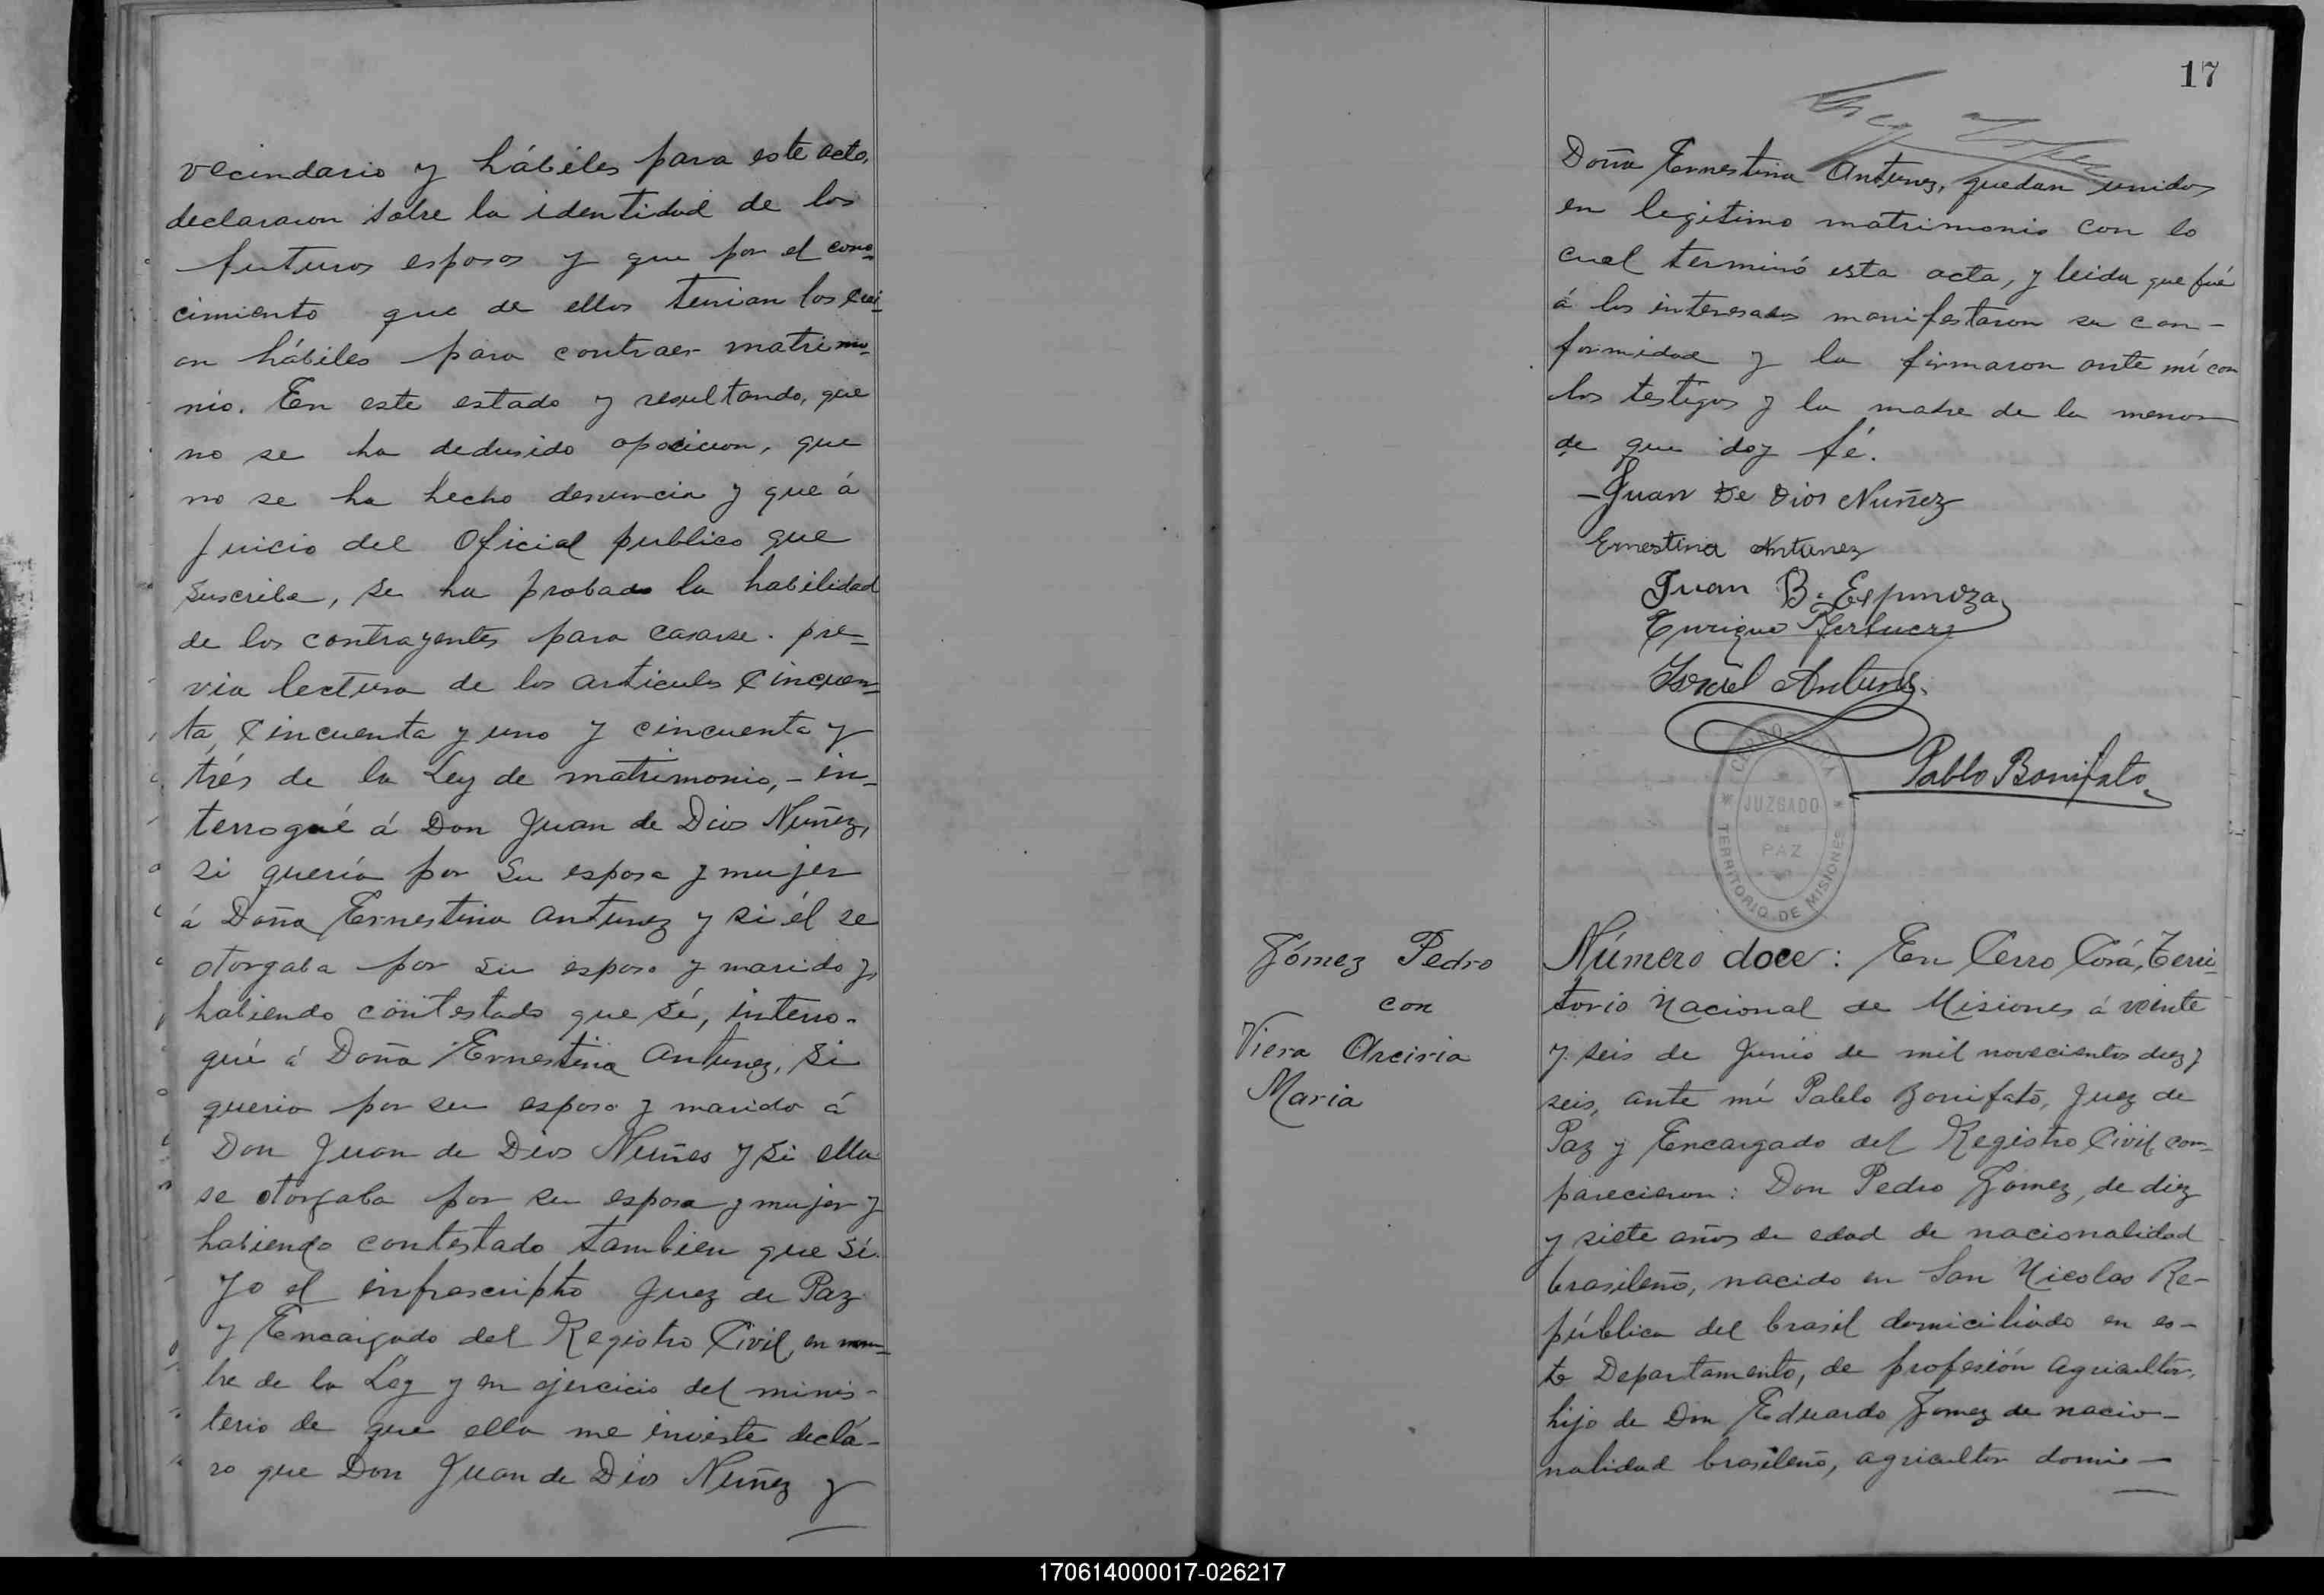 vecindario y hábiles para este acto,
declararon sobre la identidad de los
futuros esposos y que por el cono=
cimiento que de ellos tenian los crei-
an hábiles para contraer matrimo-
nio. En este estado y resultando, que
no se ha dedusido oposicion, que
no se ha hecho denuncia y que á
juicio del Oficial publico que
suscribe, se ha probado la habilidad
de los contrayentes para casarse. pre=
via lectura de los articulos Cincuen=
ta, Cincuenta y uno y cincuenta y
trés de la Ley de matrimonio, - in-
terrogué á Don Juan de Dios Nuñez,
si quería por su esposa y mujer
á Doña Ernestina Antunez y si él se
otorgaba por su esposo y marido y
habiendo contestado que sí, interro-
gué á Doña Ernestina Antunez, si
queria por su esposo y marido á
Don Juan de Dios Nuñes y si ella
se otorgaba por su esposa y mujer y
habiendo contestado tambien que sí.
Yo el infrascripto Juez de Paz
y Encargado del Registro Civil, en nom=
bre de la Ley y en ejercicio del minis-
terio de que ella me inviste declá-
ro que Don Juan de Dios Nuñez y
17
Doña Ernestina Antunez, quedan unidos
en legitimo matrimonio con lo
cual terminó esta acta, y leida que fué
á los interesados manifestaron su con-
formidad y la firmaron ante mí con
los testigos y la madre de la menor
de que doy fé.
- Juan De Dios Nuñez
Ernestina Antunez
Juan B. Espinoza
Enrique
Israel Antunes.
Pablo Bonifato
JUZGADO
DE
PAZ
TERRITORIO DE MISIONES
Gómez Pedro
con
Viera Arciria
Maria
Número doce: En Cerro Corá, Terri-
torio Nacional de Misiones á veinte
y seis de Junio de mil novecientos diez y
seis, ante mí Pablo Bonifato, Juez de
Paz y Encargado del Registro Civil, com-
parecieron: Don Pedro Gomez, de diez
y siete años de edad de nacionalidad
brasileño, nacido en San Nicolas Re-
pública del brasil domiciliado en es-
te Departamento, de profesión agricultor,
hijo de Don Eduardo Gomez de nacio-
nalidad brasileño, agricultor domi-
170614000017-026217